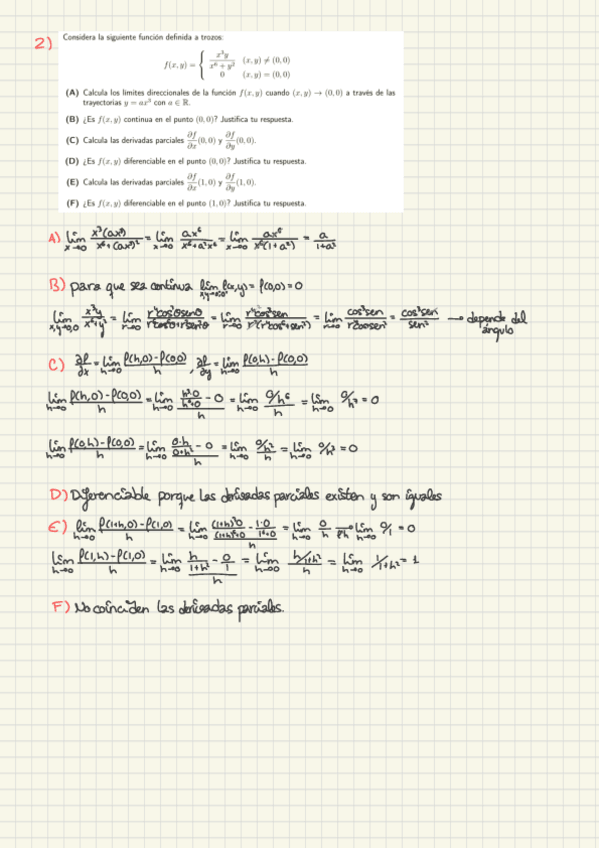 2)
Considera la siguiente función definida a trozos:
f(x, y) = { x³y / (x⁶ + y²)   (x, y) ≠ (0, 0)
0   (x, y) = (0, 0)
(A) Calcula los límites direccionales de la función f(x, y) cuando (x, y) → (0, 0) a través de las
trayectorias y = ax³ con a ∈ ℝ.
(B) ¿Es f(x, y) continua en el punto (0, 0)? Justifica tu respuesta.
(C) Calcula las derivadas parciales ∂f/∂x (0, 0) y ∂f/∂y (0, 0).
(D) ¿Es f(x, y) diferenciable en el punto (0, 0)? Justifica tu respuesta.
(E) Calcula las derivadas parciales ∂f/∂x (1, 0) y ∂f/∂y (1, 0).
(F) ¿Es f(x, y) diferenciable en el punto (1, 0)? Justifica tu respuesta.
A) lim x→0 x³(ax³)/(x⁶+(ax³)²) = lim x→0 ax⁶/(x⁶+a²x⁶) = lim x→0 ax⁶/(x⁶(1+a²)) = a/(1+a²)
B) para que sea continua lim f(x,y) = f(0,0) = 0
→ depende del
ángulo
C) ∂f/∂x = lim h→0 (f(h,0)-f(0,0))/h , ∂f/∂y = lim h→0 (f(0,h)-f(0,0))/h
lim h→0 (f(h,0)-f(0,0))/h = lim h→0 (h³·0/(h⁶+0) - 0)/h = lim h→0 (0/h⁶)/h = lim h→0 0/h⁷ = 0
lim h→0 (f(0,h)-f(0,0))/h = lim h→0 (0·h/(0+h²) - 0)/h = lim h→0 (0/h²)/h = lim h→0 0/h³ = 0
D) Diferenciable porque las derivadas parciales existen y son iguales
E) lim h→0 (f(1+h,0)-f(1,0))/h = lim h→0 ((1+h)³0/((1+h)⁶+0) - 1·0/(1⁶+0))/h = lim h→0 0/h = lim h→0 0/1 = 0
lim h→0 (f(1,h)-f(1,0))/h = lim h→0 (h/(1+h²) - 0/1)/h = lim h→0 (h/1+h²)/h = lim h→0 1/1+h² = 1
F) No coinciden las derivadas parciales.